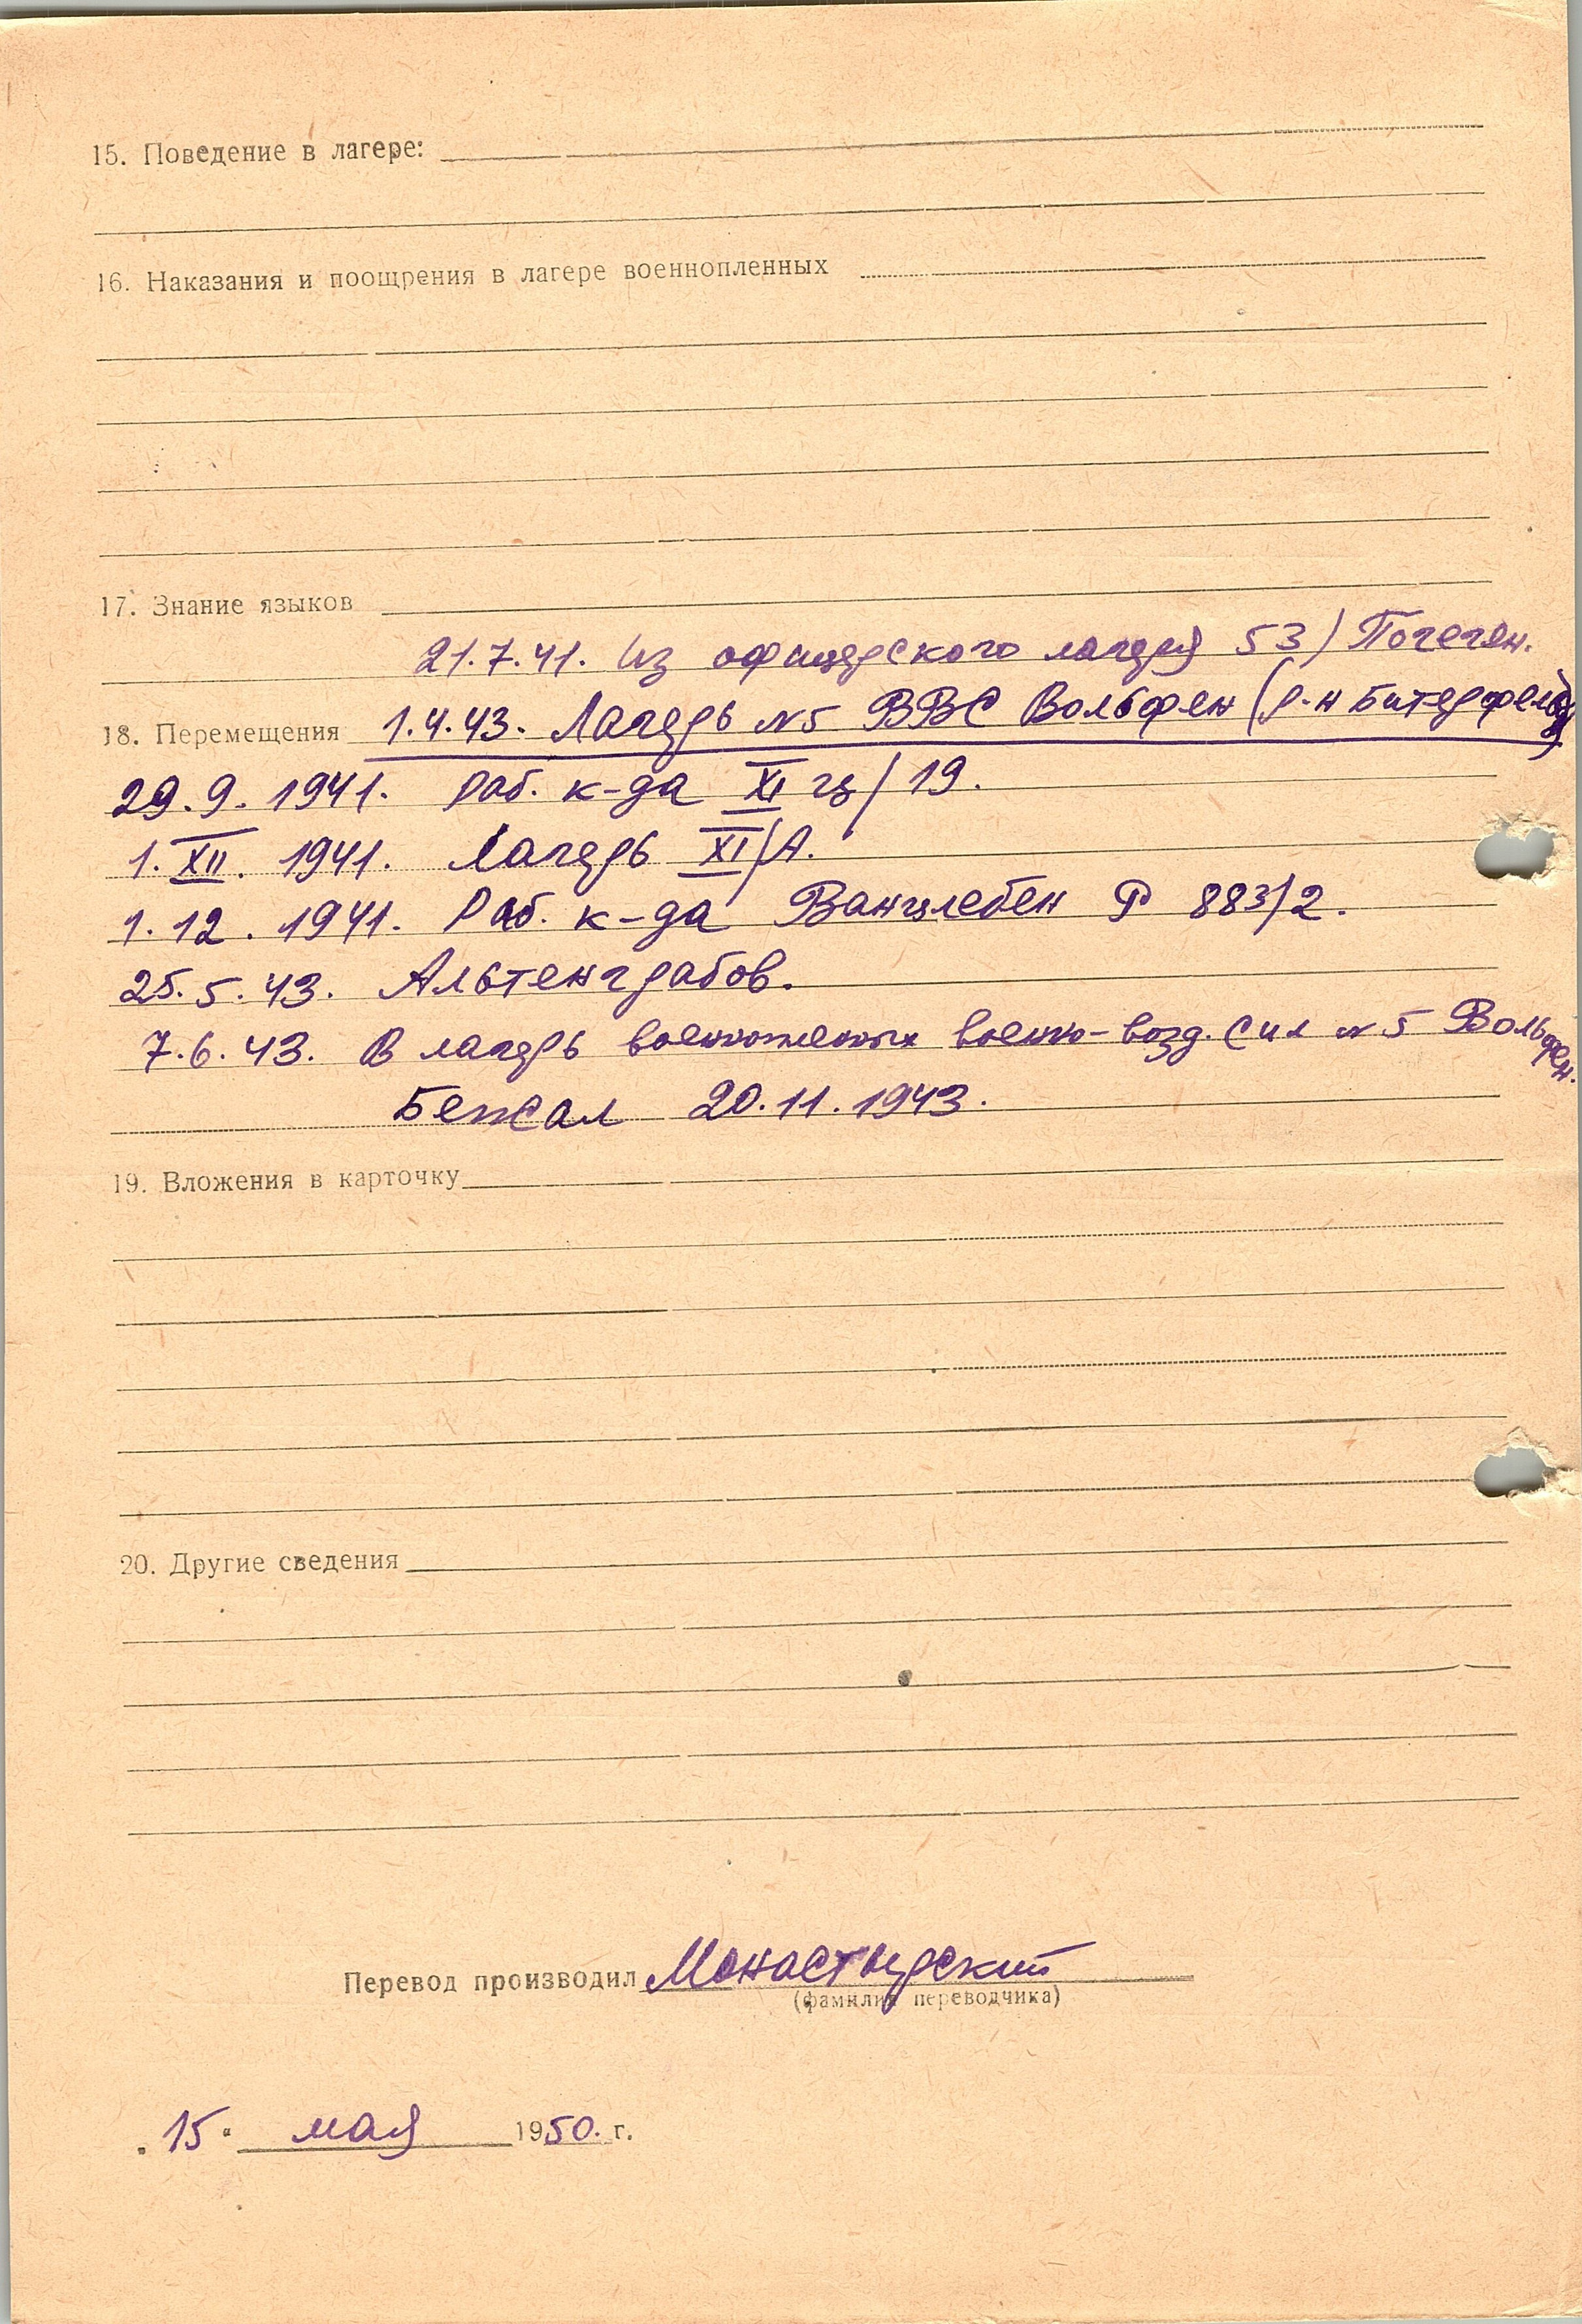 15. Поведение в лагере:
16. Наказания и поощрения в лагере военнопленных
17. Знание языков
21.7.41. Из офицерского лагеря 53) Погеген.
18. Перемещения 1.4.43. Лагерь №5 ВВС Вольфен (р-н Битерфельд)
29.9.1941. Раб. к-да XI ц/19.
1.XII.1941. Лагерь XI/А.
1.12.1941. Раб. к-да Ванцлебен Р 883/2.
25.5.43. Альтенграбов.
7.6.43. В лагерь военнопленных военно-возд. сил №5 Вольфен.
Бежал 20.11.1943.
19. Вложения в карточку
20. Другие сведения
Перевод производил Монастырский
(фамилия переводчика)
„15“ мая 1950. г.